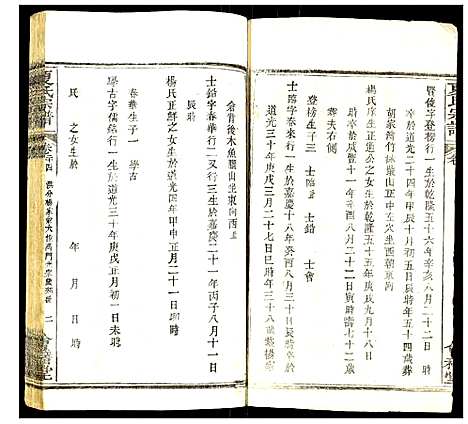 賢俊字登榜行一生於乾隆五十六年辛亥八月二十二日
歿於道光二十四年甲辰十月初五日辰時年五十四歲
胡家灣竹山正中左穴坐西朝東
楊氏庠生正道公之女生於乾隆庚戌九月十七日
時歿於咸豐十一年辛酉八月二十二日寅時壽七十二歲
葬夫右側
登榜生子三 士臨 士錯 士會
士臨字春來行一生於嘉慶十八年癸酉八月三十日辰時歿
於道光三十年庚戌三月二十七日巳時年三十八歲葬樓
倉背後木魚山坐東向西
士錯字春華行二生於嘉慶二十一年丙子八月十一日
辰時
楊氏正鮮之女生於道光四年甲申正月二十一日
時
春華生子一 學古
學古字儒行一生於道光三十年庚戌正月初一日未時
氏 之女生於 年 月 日 時
夏氏宗譜